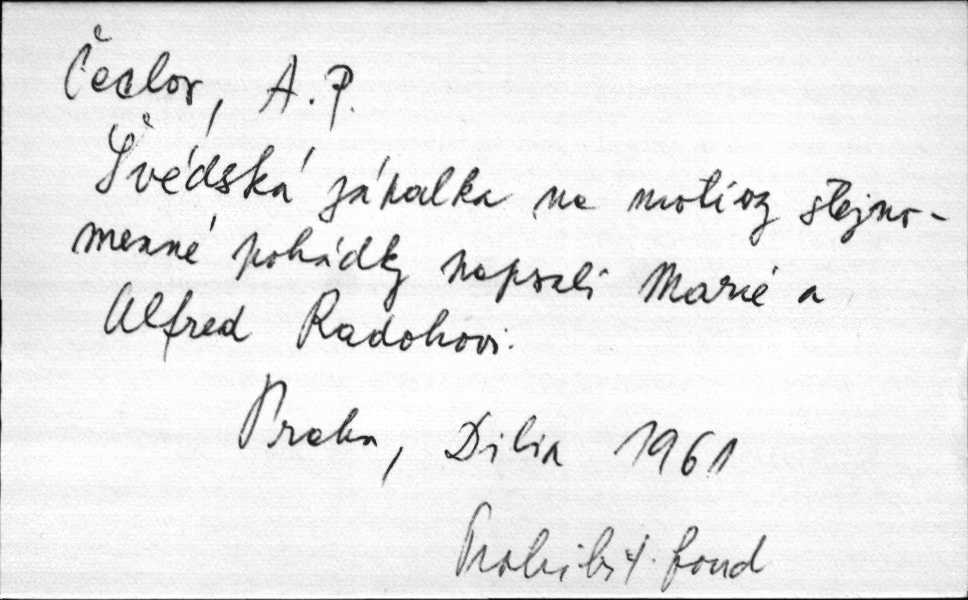 Čechov, A. P.
Švédská zápalka na motivy stejno-
menné pohádky napsali Marie a
Alfred Radokovi.
Praha, Dilia 1961
Prohibit. fond